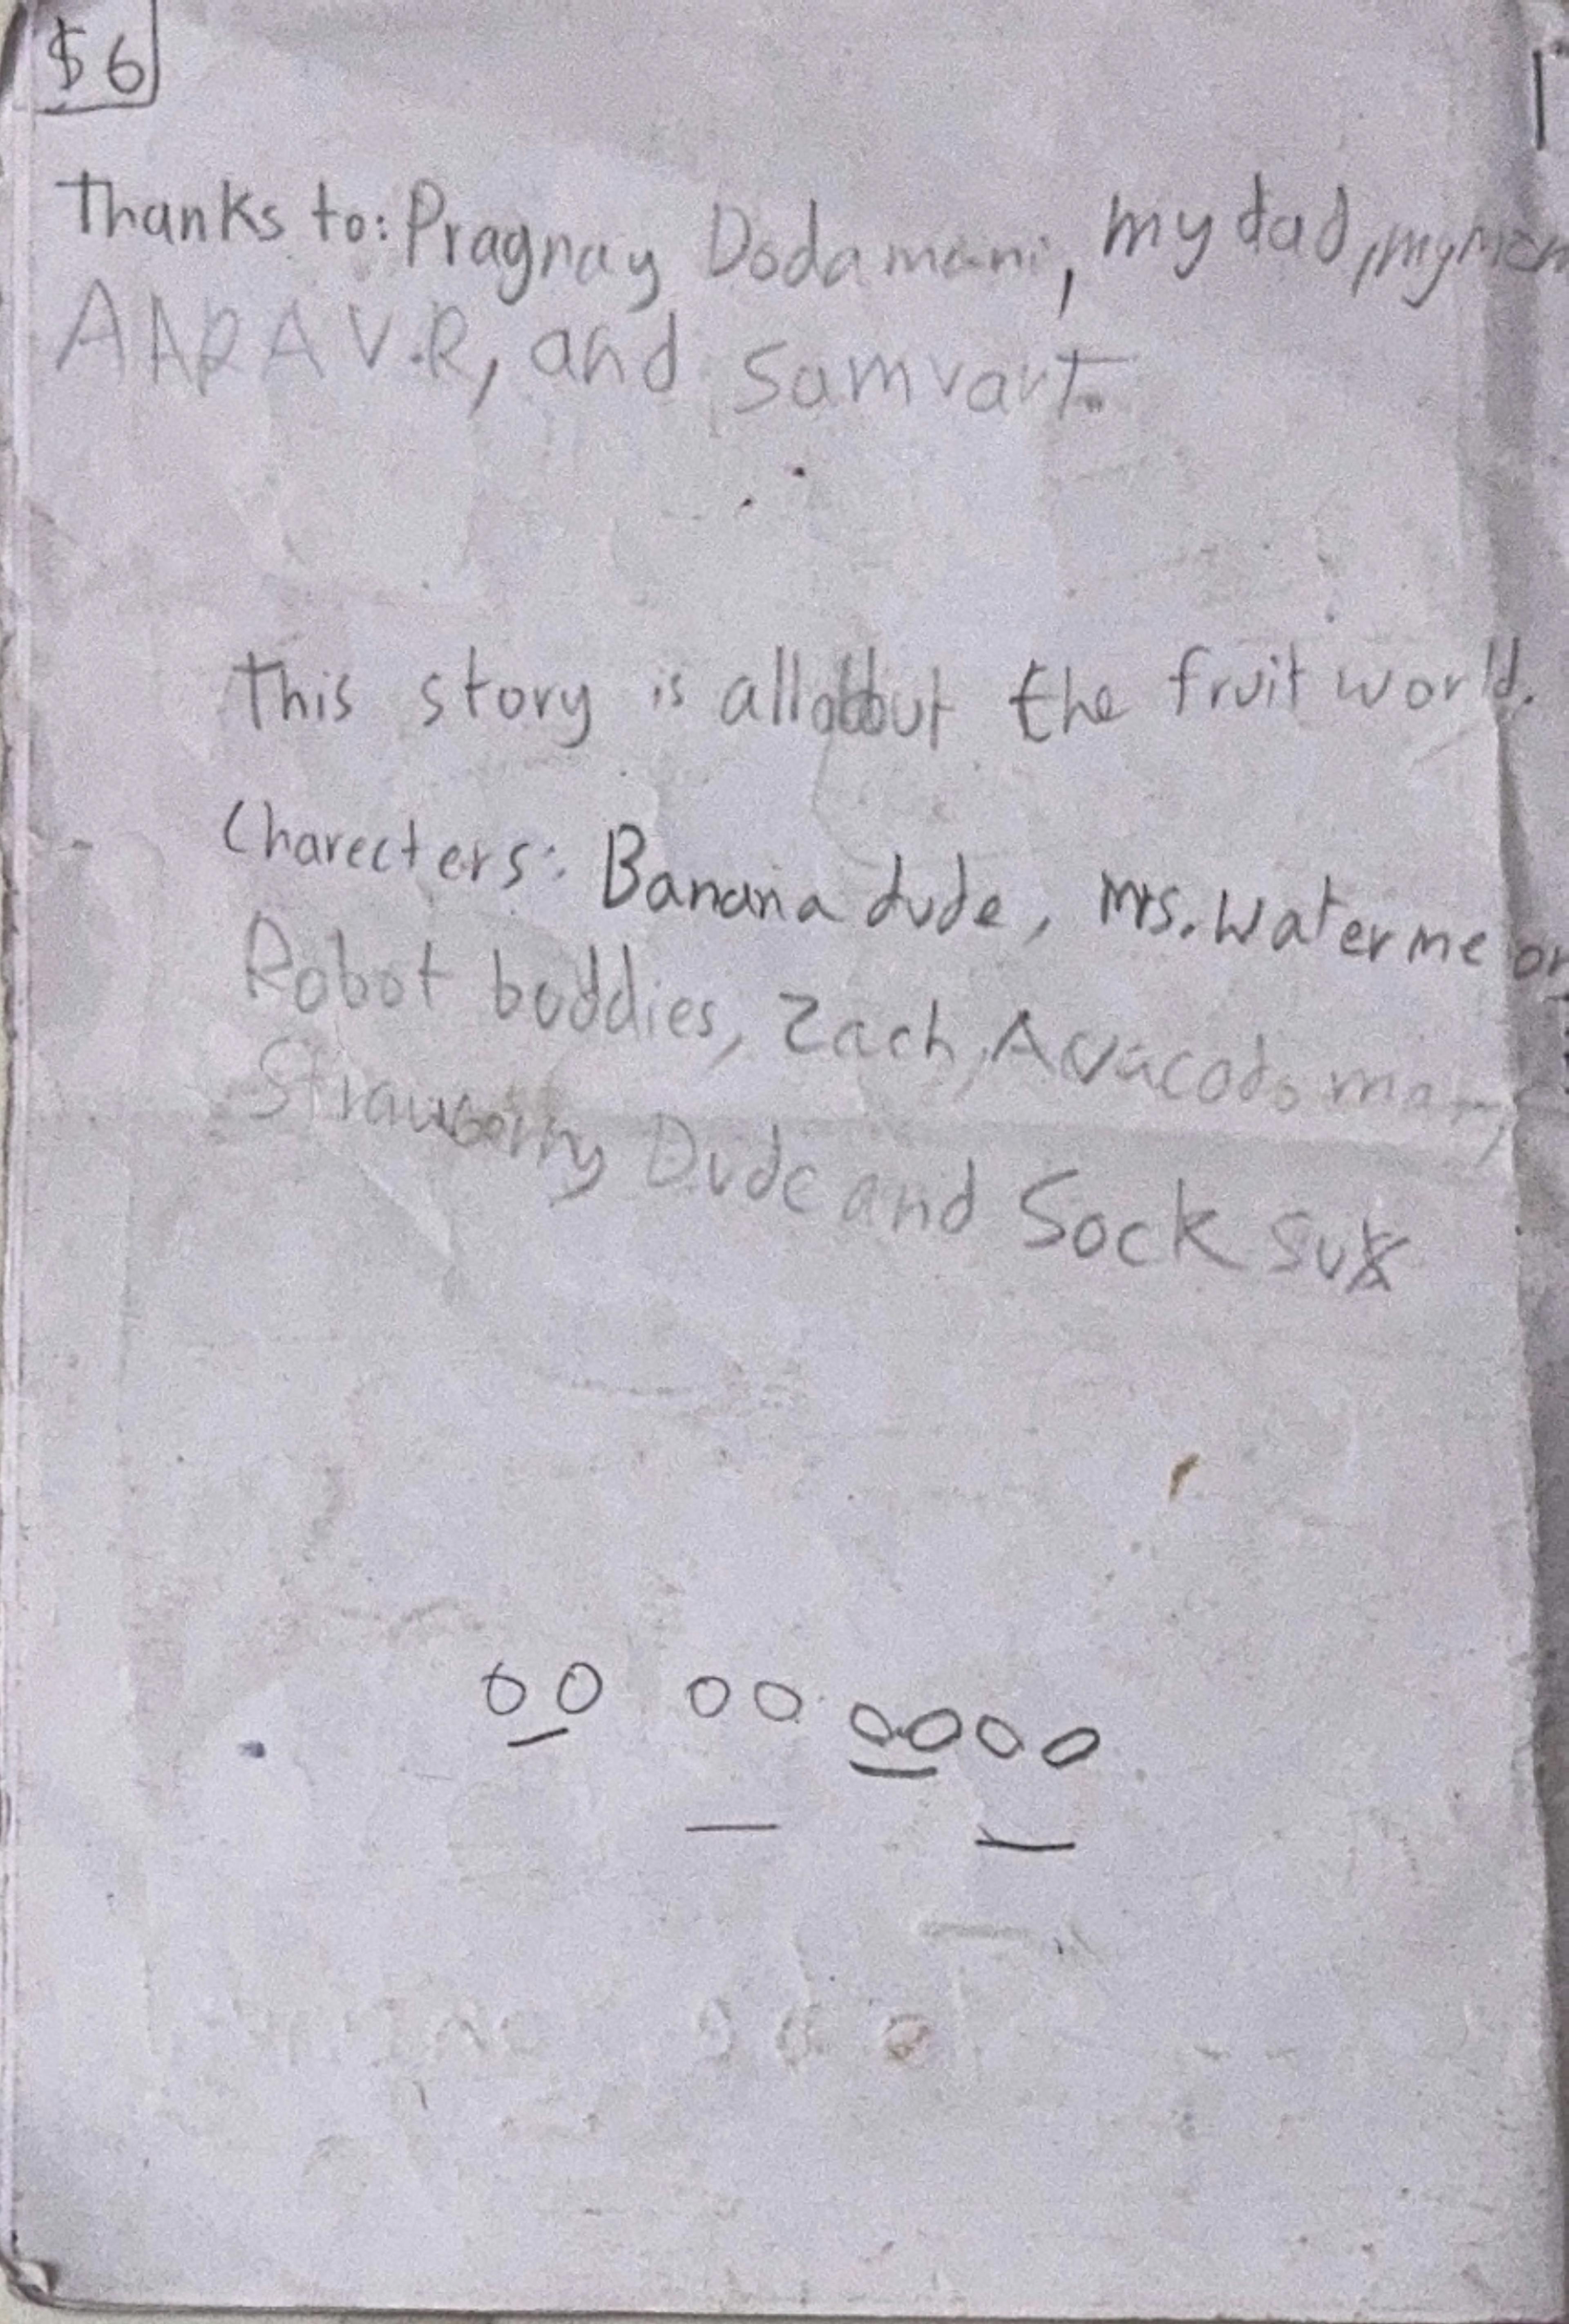 $6
Thanks to: Pragnay Dodamani, my dad, my mom
AARAV.R, and Samvart.
This story is all about the fruit world.
Charecters: Banana dude, Mrs. Watermelon
Robot buddies, Zach, Avacodo man,
Strawberry Dude and Sock sux